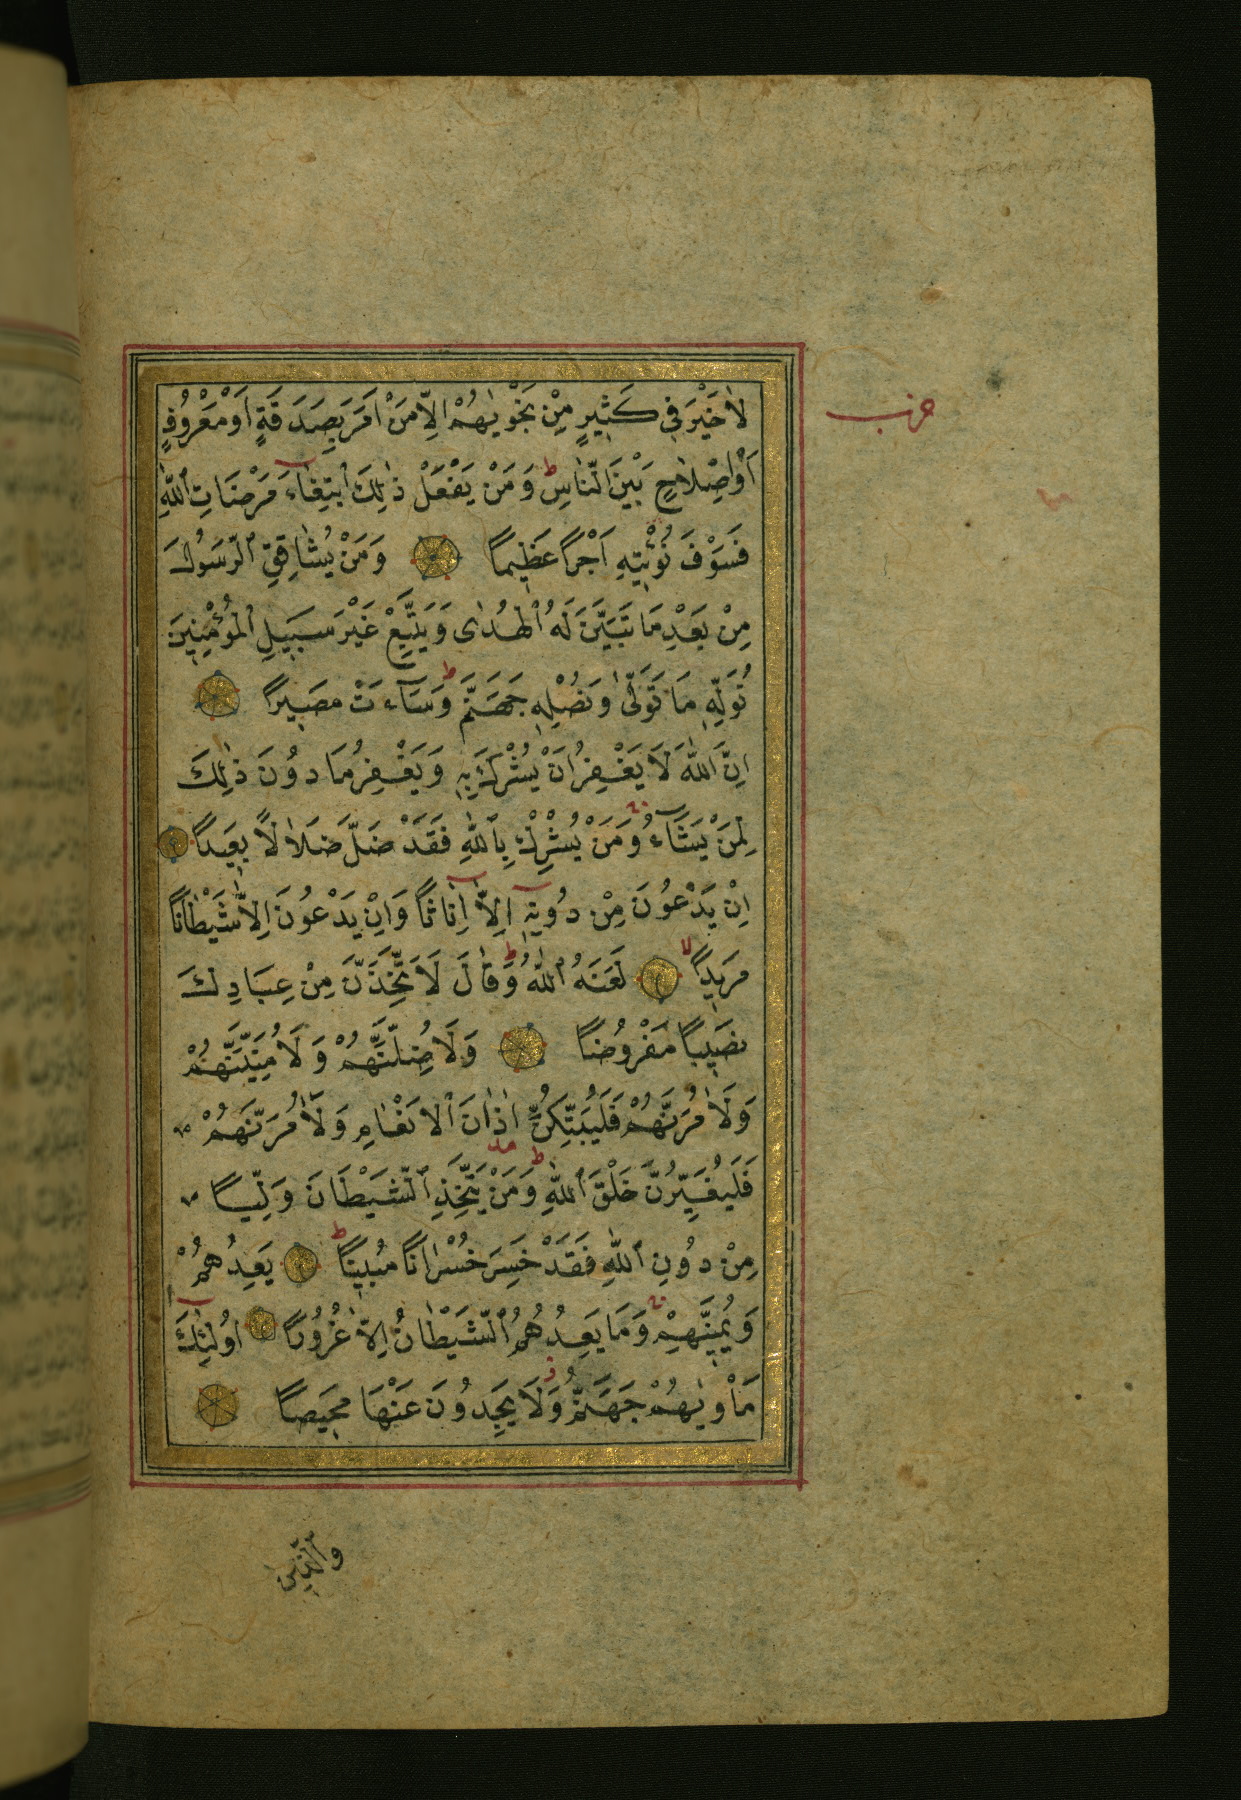 لَا خَيْرَ فِي كَثِيرٍ مِنْ نَجْوٰيهُمْ اِلَّا مَنْ اَمَرَ بِصَدَقَةٍ اَوْ مَعْرُوفٍ
حزب
اَوْ اِصْلَاحٍ بَيْنَ النَّاسِ ط وَمَنْ يَفْعَلْ ذٰلِكَ ابْتِغَاءَ مَرْضَاتِ اللّٰهِ
فَسَوْفَ نُؤْتِيهِ اَجْرًا عَظِيمًا وَمَنْ يُشَاقِقِ الرَّسُولَ
مِنْ بَعْدِ مَا تَبَيَّنَ لَهُ الْهُدٰى وَيَتَّبِعْ غَيْرَ سَبِيلِ الْمُؤْمِنِينَ
نُوَلِّهِ مَا تَوَلّٰى وَنُصْلِهِ جَهَنَّمَ ط وَسَآءَتْ مَصِيرًا
اِنَّ اللّٰهَ لَا يَغْفِرُ اَنْ يُشْرَكَ بِهِ وَيَغْفِرُ مَا دُونَ ذٰلِكَ
لِمَنْ يَشَآءُ وَمَنْ يُشْرِكْ بِاللّٰهِ فَقَدْ ضَلَّ ضَلَالًا بَعِيدًا
اِنْ يَدْعُونَ مِنْ دُونِهِ اِلَّا اِنَاثًا وَاِنْ يَدْعُونَ اِلَّا شَيْطَانًا
مَرِيدًا لا لَعَنَهُ اللّٰهُ ط وَقَالَ لَاَتَّخِذَنَّ مِنْ عِبَادِكَ
نَصِيبًا مَفْرُوضًا وَلَاُضِلَّنَّهُمْ وَلَاُمَنِّيَنَّهُمْ
وَلَاٰمُرَنَّهُمْ فَلَيُبَتِّكُنَّ اٰذَانَ الْاَنْعَامِ وَلَاٰمُرَنَّهُمْ
فَلَيُغَيِّرُنَّ خَلْقَ اللّٰهِ ط وَمَنْ يَتَّخِذِ الشَّيْطَانَ وَلِيًّا
مِنْ دُونِ اللّٰهِ فَقَدْ خَسِرَ خُسْرَانًا مُبِينًا ط يَعِدُهُمْ
وَيُمَنِّيهِمْ وَمَا يَعِدُهُمُ الشَّيْطَانُ اِلَّا غُرُورًا اُولٰئِكَ
مَأْوٰيهُمْ جَهَنَّمُ وَلَا يَجِدُونَ عَنْهَا مَحِيصًا
والذين